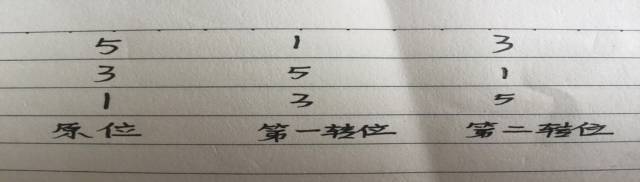 5 1 3
3 5 1
1 3 5
原位 第一转位 第二转位